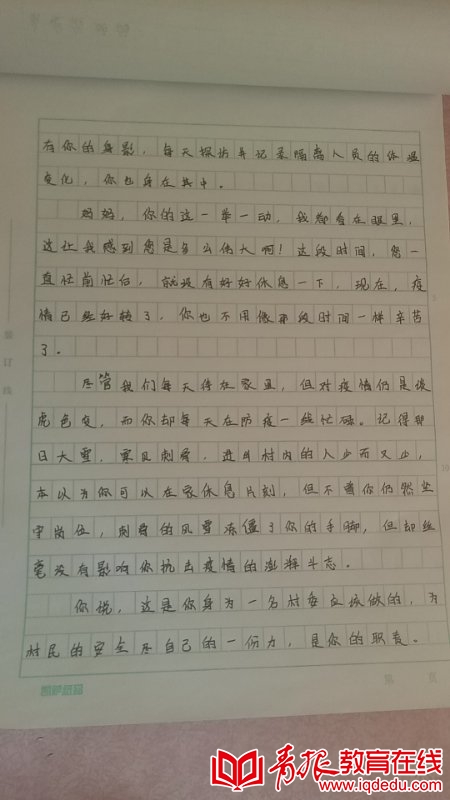 有你的身影，每天探访并记录隔离人员的体温
变化，你也身在其中。
妈妈，你的这一举一动，我都看在眼里，
这让我感到您是多么伟大啊！这段时间，您一
直忙前忙后，就没有好好休息一下，现在，疫
情已经好转了，你也不用像那段时间一样辛苦
了。
尽管我们每天待在家里，但对疫情仍是谈
虎色变，而你却每天在防疫一线忙碌。记得那
日大雪，寒风刺骨，进出村内的人少而又少，
本以为你可以在家休息片刻，但不曾你仍然坚
守岗位，刺骨的风雪冻僵了你的手脚，但却丝
毫没有影响你抗击疫情的澎湃斗志。
你说，这是你身为一名村委应该做的，为
村民的安全尽自己的一份力，是你的职责。
装订线
5
10
凯萨纸品
第 页
青报教育在线
www.iqdedu.com